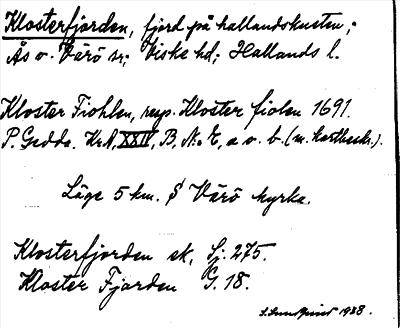 Klosterfjorden, fjord på hallandskusten;
Ås o. Värö sr; Viske hd; Hallands l.
Kloster Fiohlen, resp. Kloster fiolen 1691.
P. Gedda. Kr.A, XXIV, B. N:o 4, a o. b. (m. kartbeskr.).
Läge 5 km. S Värö kyrka.
Klosterfjorden sk, Sj. 275.
Kloster Fjorden G. 18.
1938.